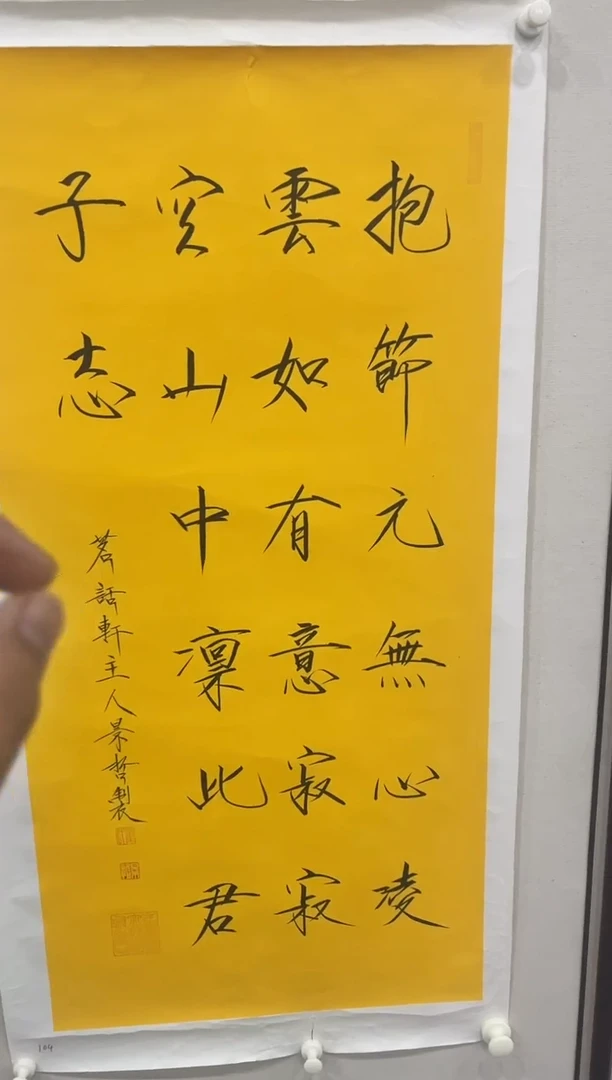 抱節元無心凌
雲如有意寂寂
空山中凜此君
子志
茗話軒主人景哲製
184